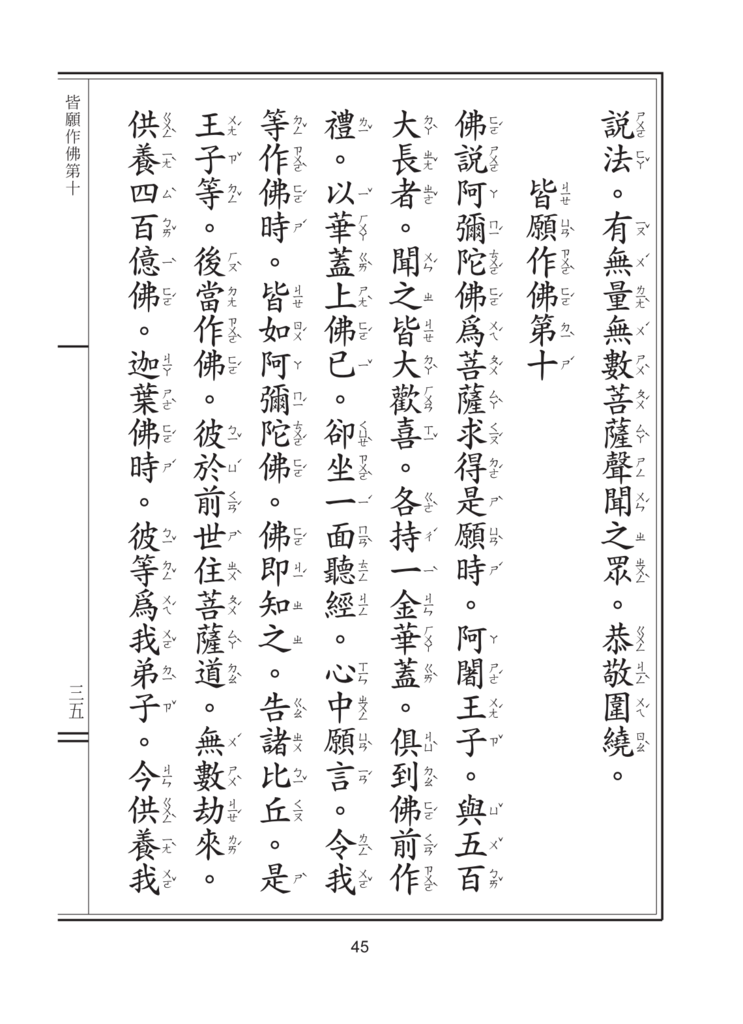 說法。有無量無數菩薩聲聞之眾。恭敬圍繞。
皆願作佛第十
佛說阿彌陀佛為菩薩求得是願時。阿闍王子。與五百
大長者。聞之皆大歡喜。各持一金華蓋。俱到佛前作
禮。以華蓋上佛已。卻坐一面聽經。心中願言。令我
等作佛時。皆如阿彌陀佛。佛即知之。告諸比丘。是
王子等。後當作佛。彼於前世住菩薩道。無數劫來。
供養四百億佛。迦葉佛時。彼等為我弟子。今供養我
皆願作佛第十
三五
45